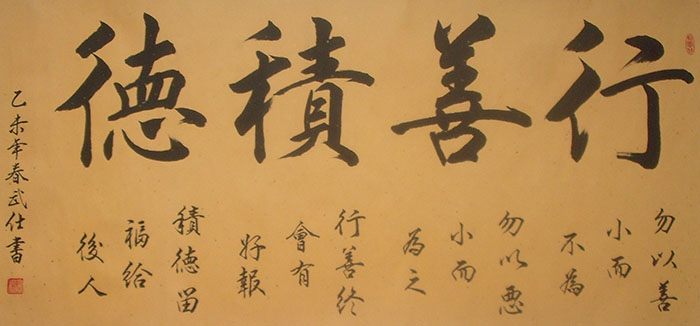 行善積德
勿以善
小而
不為
勿以惡
小而
為之
行善終
會有
好報
積德留
福給
後人
乙未年春武仕書